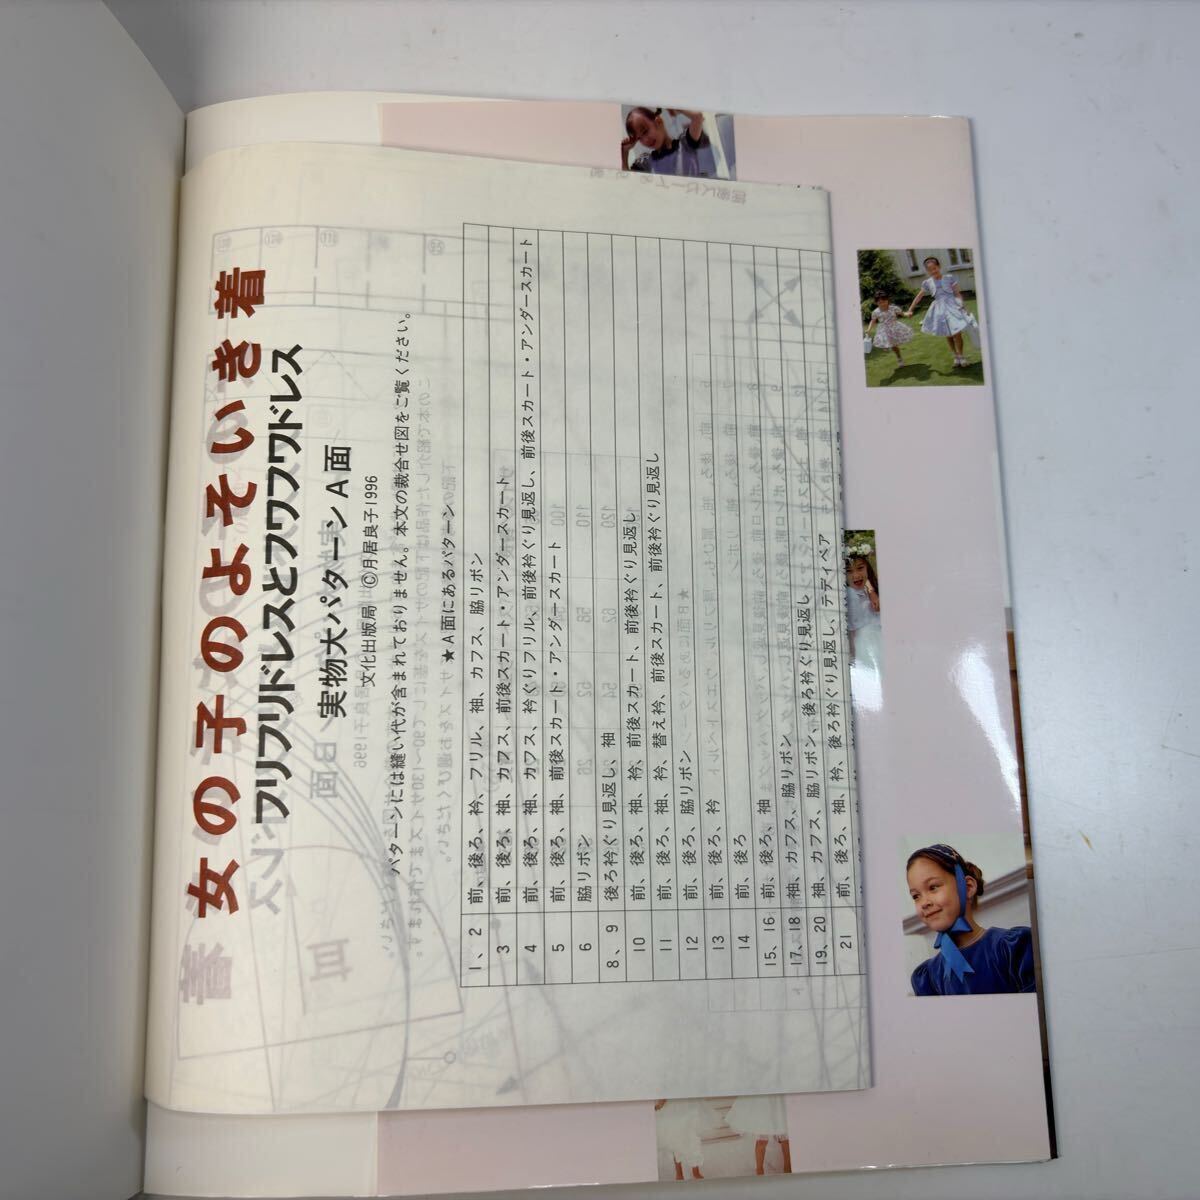 女の子のよそいき着
フリフリドレスとフワフワドレス
実物大パターンA面
文化出版局 ©月居良子1996
パターンには縫い代が含まれておりません。本文の裁合せ図をご覧ください。
★A面にあるパターン
1、2 前、後ろ、衿、フリル、袖、カフス、脇リボン
3 前、後ろ、袖、カフス、前後スカート・アンダースカート
4 前、後ろ、袖、カフス、衿ぐりフリル、前後衿ぐり見返し、前後スカート・アンダースカート
5 前、後ろ、袖、前後スカート・アンダースカート
6 脇リボン
8、9 後ろ衿ぐり見返し、袖
10 前、後ろ、袖、衿、前後スカート、前後衿ぐり見返し
11 前、後ろ、袖、衿、替え衿、前後スカート、前後衿ぐり見返し
12 前、後ろ、脇リボン
13 前、後ろ、衿
14 前、後ろ
15、16 前、後ろ、袖
17、18 袖、カフス、脇リボン
19、20 袖、カフス、脇リボン、後ろ衿ぐり見返し
21 前、後ろ、袖、衿、後ろ衿ぐり見返し、テディベア